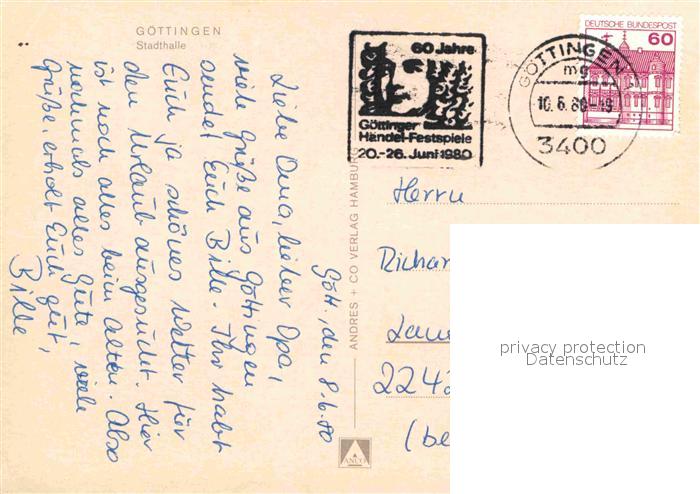 GÖTTINGEN
Stadthalle
60 Jahre
Göttinger
Händel-Festspiele
20.-26. Juni 1980
GÖTTINGEN
mg
10.6.80-19
3400
DEUTSCHE BUNDESPOST
60
Gött., den 8.6.80
Liebe Oma, lieber Opa,
viele Grüße aus Göttingen
sendet Euch Bille. Ihr habt
Euch ja schönes Wetter für
den Urlaub ausgesucht. Hier
ist noch alles beim alten. Also
nochmals alles Gute, viele
Grüße, erholt Euch gut,
Bille
ANDRES + CO VERLAG HAMBURG
ANCO
Herrn
Richar
2242
(be
privacy protection
Datenschutz